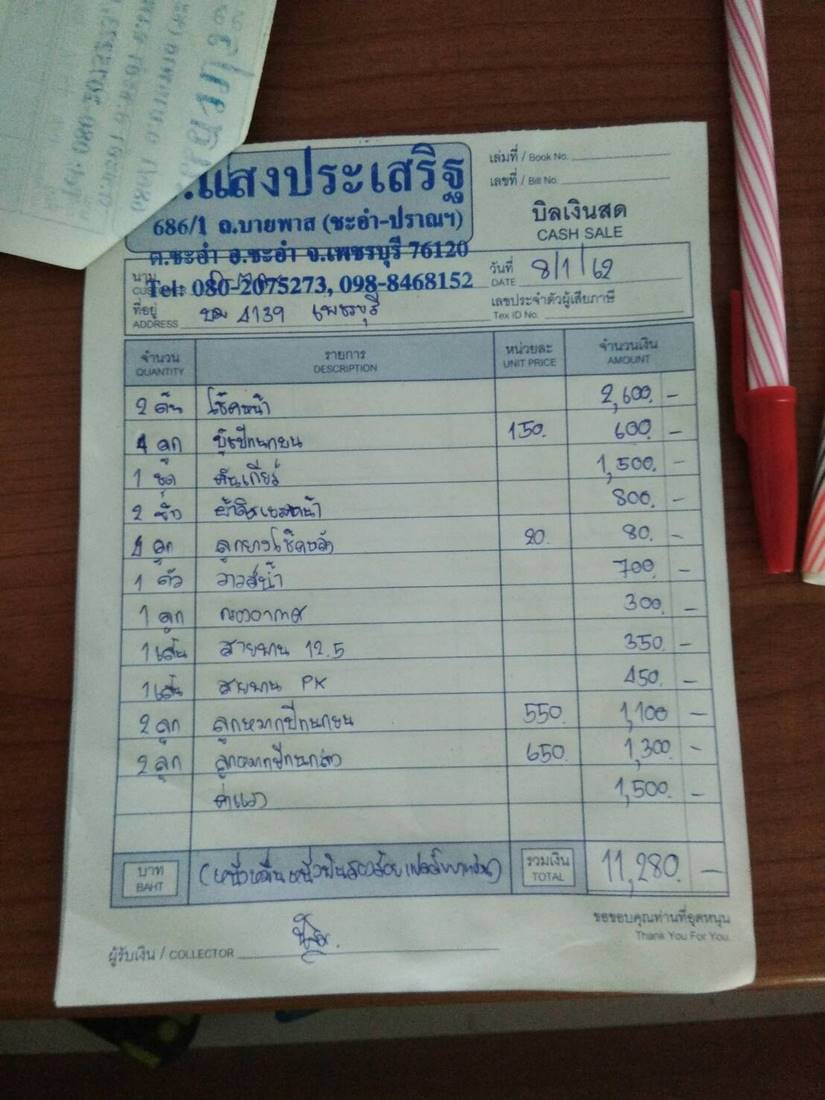 .แสงประเสริฐ
686/1 ถ.บายพาส (ชะอำ-ปราณฯ)
ต.ชะอำ อ.ชะอำ จ.เพชรบุรี 76120
Tel: 080-2075273, 098-8468152
เล่มที่ / Book No.
เลขที่ / Bill No.
บิลเงินสด
CASH SALE
นาม
วันที่ 8/1/62
DATE
ที่อยู่ 4139 เพชรบุรี
ADDRESS
เลขประจำตัวผู้เสียภาษี
Tex ID No.
จำนวน รายการ หน่วยละ จำนวนเงิน
QUANTITY DESCRIPTION UNIT PRICE AMOUNT
2 ต้น โช๊คหน้า 2,600.-
4 ลูก บู๊ชปีกนกบน 150. 600.-
1 ชุด คันเกียร์ 1,500.-
2 800.-
4 ลูก ลูกยางโช๊คหลัง 20. 80.-
1 ตัว วาวล์น้ำ 700.-
1 ลูก กรองอากาศ 300.-
1 เส้น สายพาน 12.5 350.-
1 เส้น สายพาน PK 450.-
2 ลูก ลูกหมากปีกนกบน 550. 1,100 -
2 ลูก ลูกหมากปีกนกล่าง 650. 1,300.-
ค่าแรง 1,500.-
บาท (หนึ่งหมื่นหนึ่งพันสองร้อยแปดสิบบาทถ้วน) รวมเงิน 11,280.-
BAHT TOTAL
ขอขอบคุณท่านที่อุดหนุน
Thank You For You.
ผู้รับเงิน / COLLECTOR